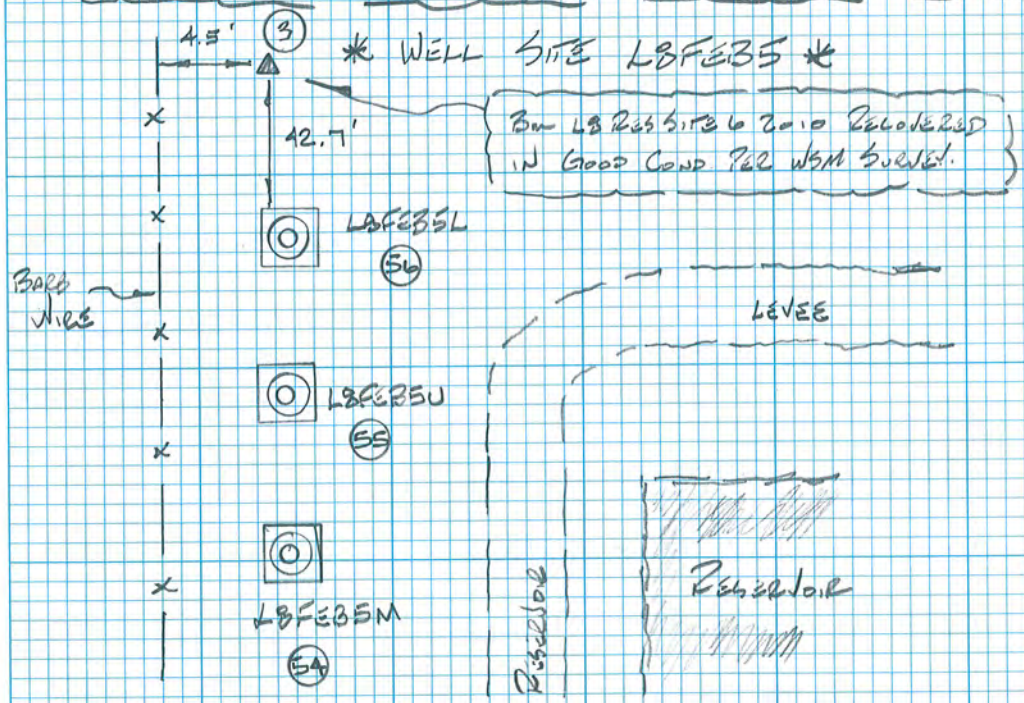 4.5'
3
* WELL SITE L8FEB5 *
42.7'
BM L8 RES SITE 6 2010 RECOVERED
IN GOOD COND PER WSM SURVEY.
L8FEB5L
56
BARB
WIRE
LEVEE
L8FEB5U
55
RESERVOIR
RESERVOIR
L8FEB5M
54